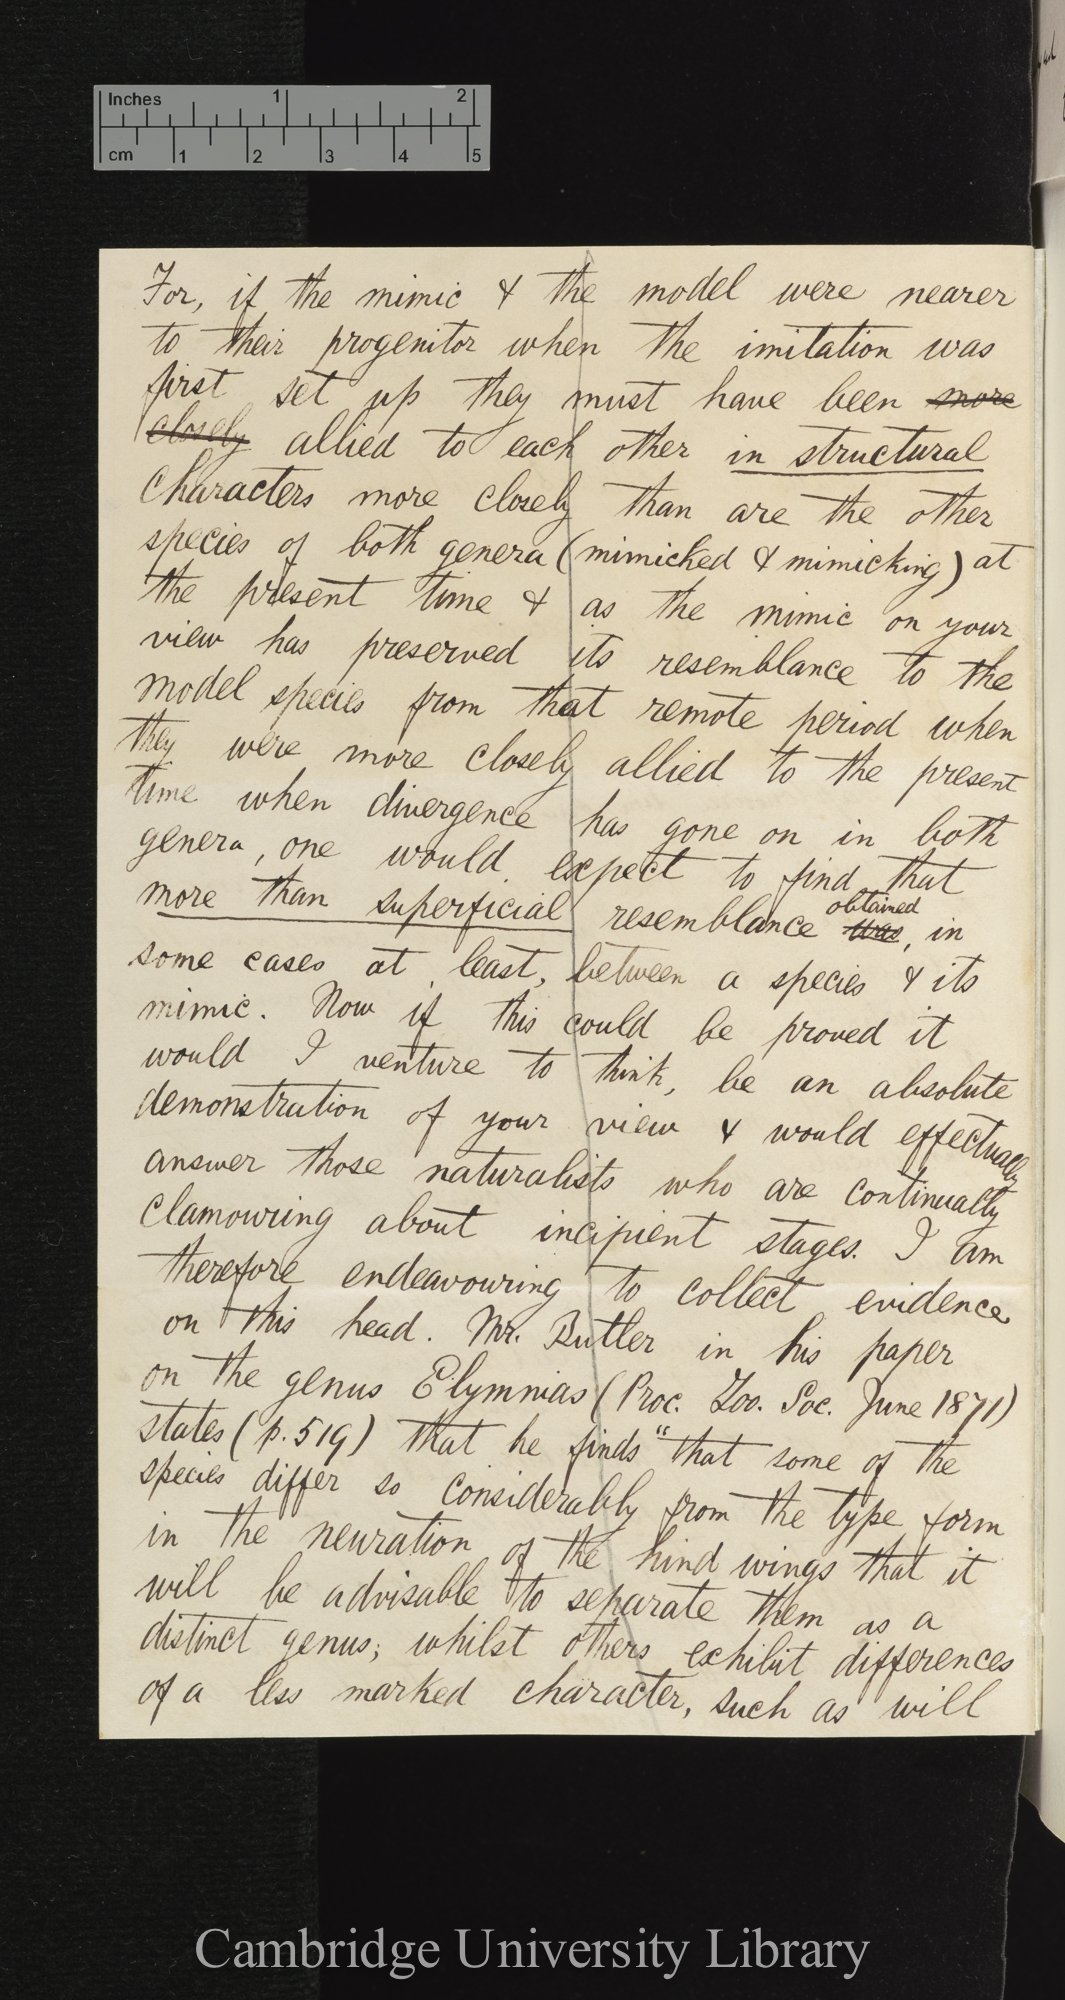 Inches 1 2
cm 1 2 3 4 5
For, if the mimic & the model were nearer
to their progenitor when the imitation was
first set up they must have been more
closely allied to each other in structural
characters more closely than are the other
species of both genera (mimicked & mimicking) at
the present time & as the mimic on your
view has preserved its resemblance to the
model species from that remote period when
they were more closely allied to the present
time when divergence has gone on in both
genera, one would expect to find that
more than superficial resemblance was, in
obtained
some cases at least, between a species & its
mimic. Now if this could be proved it
would I venture to think, be an absolute
demonstration of your view & would effectually
answer those naturalists who are continually
clamouring about incipient stages. I am
therefore endeavouring to collect evidence
on this head. Mr. Butler in his paper
on the genus Elymnias (Proc. Zoo. Soc. June 1871)
states (p. 519) that he finds "that some of the
species differ so considerably from the type form
in the neuration of the hind wings that it
will be advisable to separate them as a
distinct genus; whilst others exhibit differences
of a less marked character, such as will
Cambridge University Library